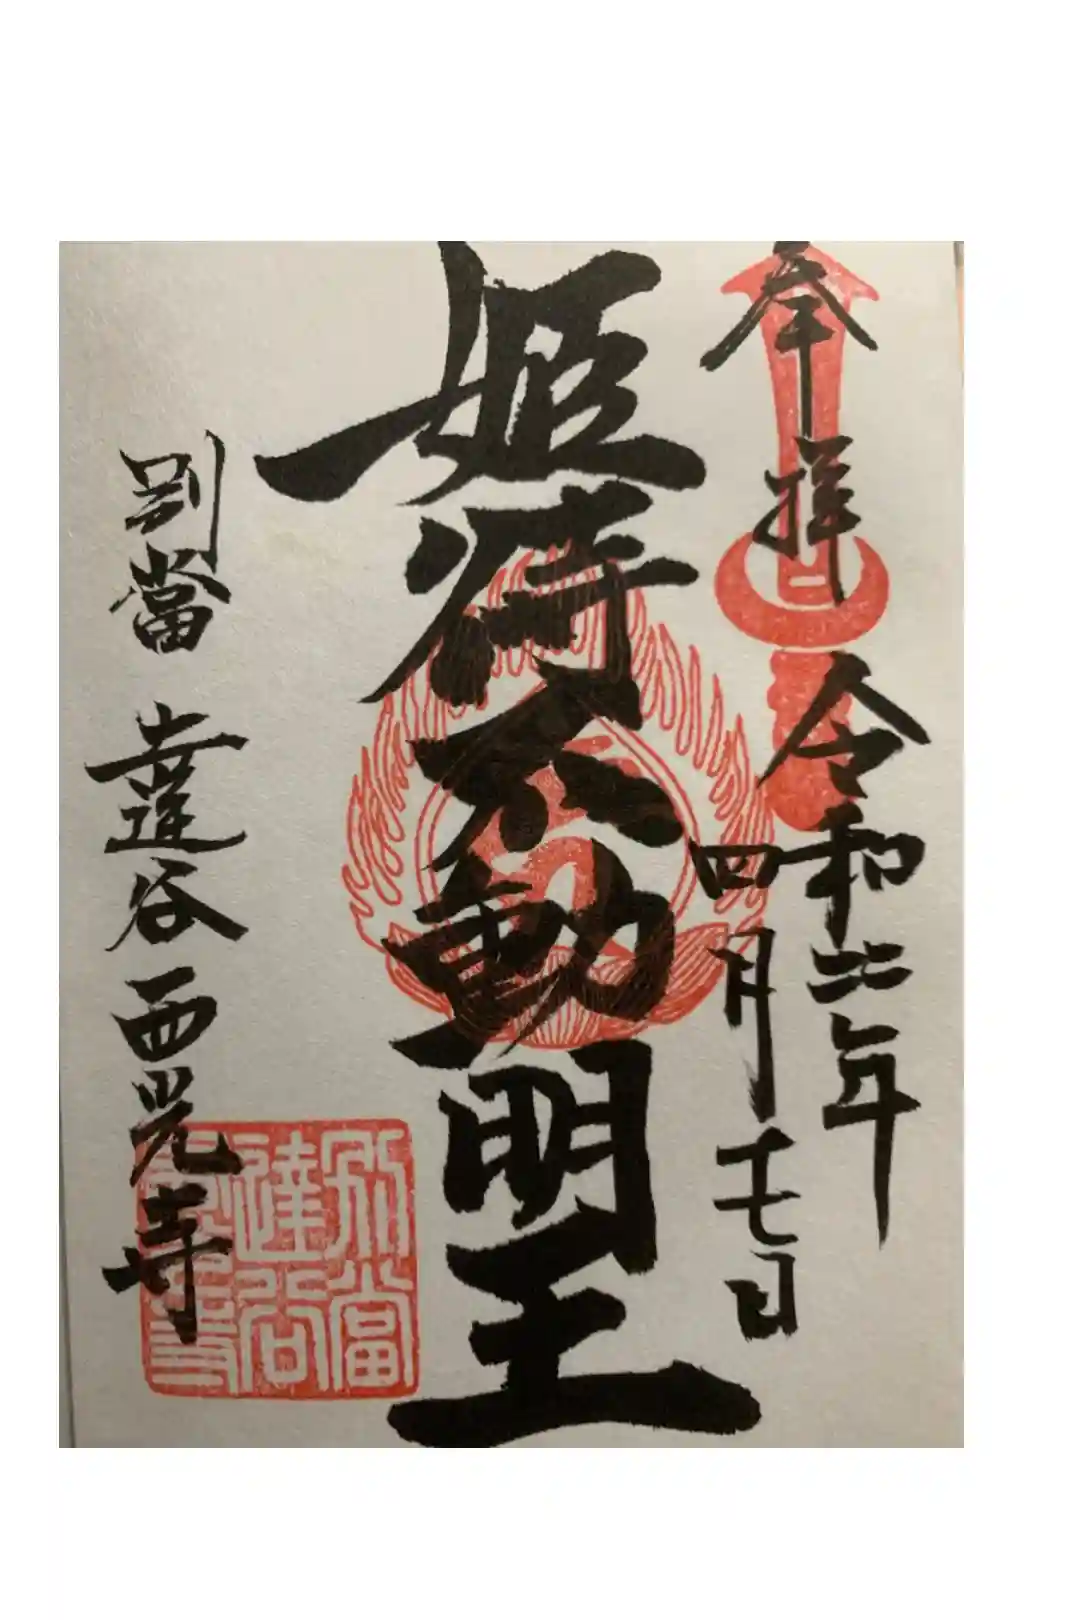 奉拝
令和六年
四月二十七日
姫待不動明王
別當 達谷西光寺
別當
達谷